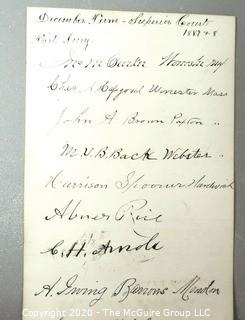 December Term - Superior Court
1887 & 8
First Jury.
Worcester
Chas. A. Worcester Mass
John A Brown Paxton "
M. V. B. Back Webster "
Harrison Spooner Hardwick
Abner Rice
C. H. Arnold
A. Irving Barrows Mendon
Copyright 2020 - Photos of the Past